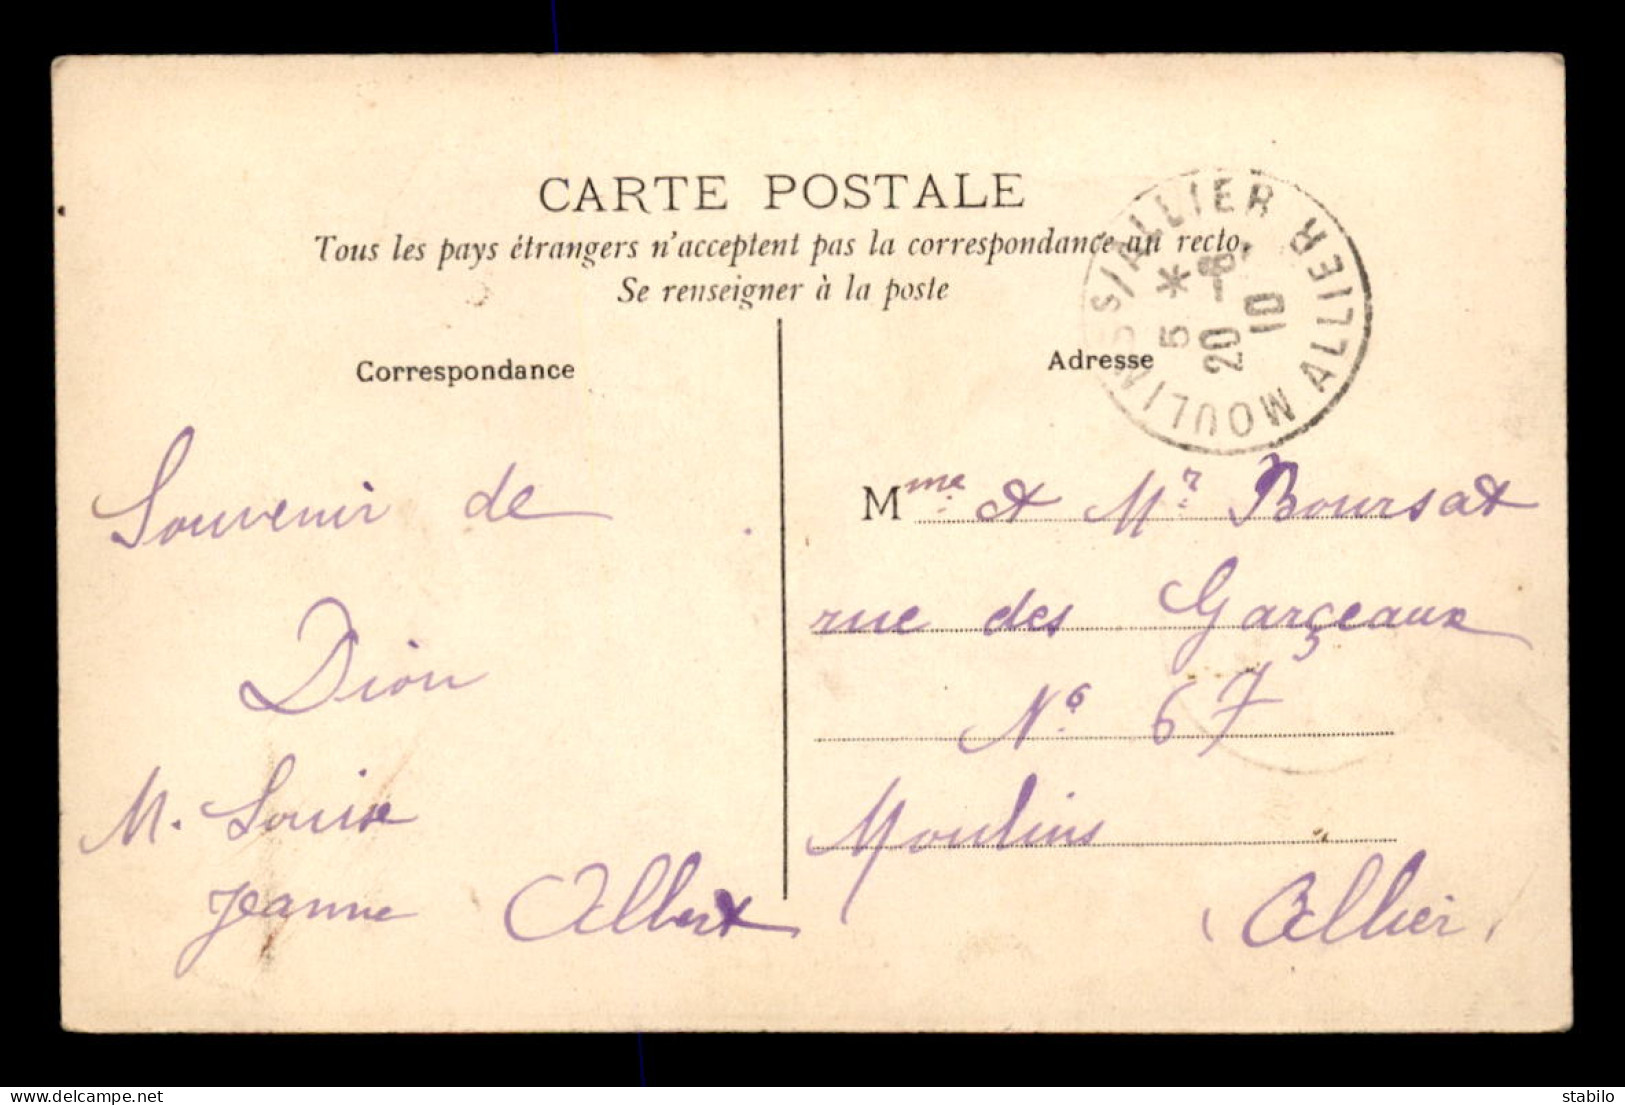 CARTE POSTALE
Tous les pays étrangers n'acceptent pas la correspondance au recto.
Se renseigner à la poste
Correspondance
Souvenir de
Diou
M. Louise
Jeanne Albert
Adresse
MOULINS S/ALLIER ALLIER
5 *
20 -8
10
Mme et Mr Boursat
rue des Garçeaux
No 67
Moulins
(Allier)
delcampe.net
stabilo